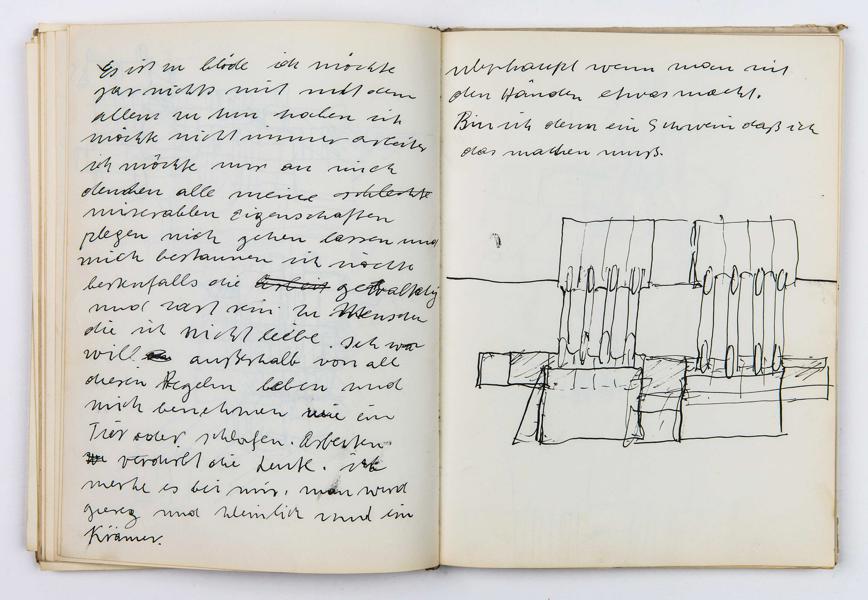 Es ist zu blöde ich möchte
gar nichts mit mit dem
allem zu tun haben ich
möchte nicht immer arbeiten
ich möchte nur an mich
denchen alle meine schlechte
miserablen Eigenschaften
plegen mich gehen lassen und
mich bestaunen ich möchte
bestenfalls die Arbeit gewalttätig
und zart sein zu Menschen
die ich nicht liebe. Ich
will außerhalb von all
diesen Regeln leben und
mich benehmen wie ein
Tier oder schlafen. Arbeiten
verdirbt die Leute. ich
merke es bei mir, man wird
gierig und kleinlich und ein
Krämer.
überhaupt wenn man mit
den Händen etwas macht.
Bin ich denn ein Schwein daß ich
das machen muß.